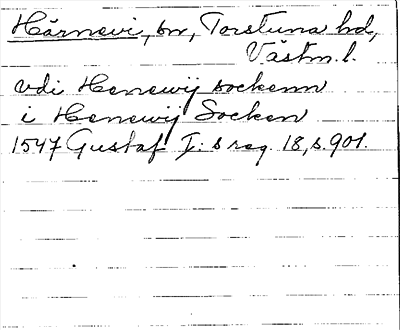 Härnevi, sn, Torstuna hd,
Västm. l.
vdi Henewij sockenn
i Henewij Socken
1547 Gustaf I:s reg. 18, s. 901.